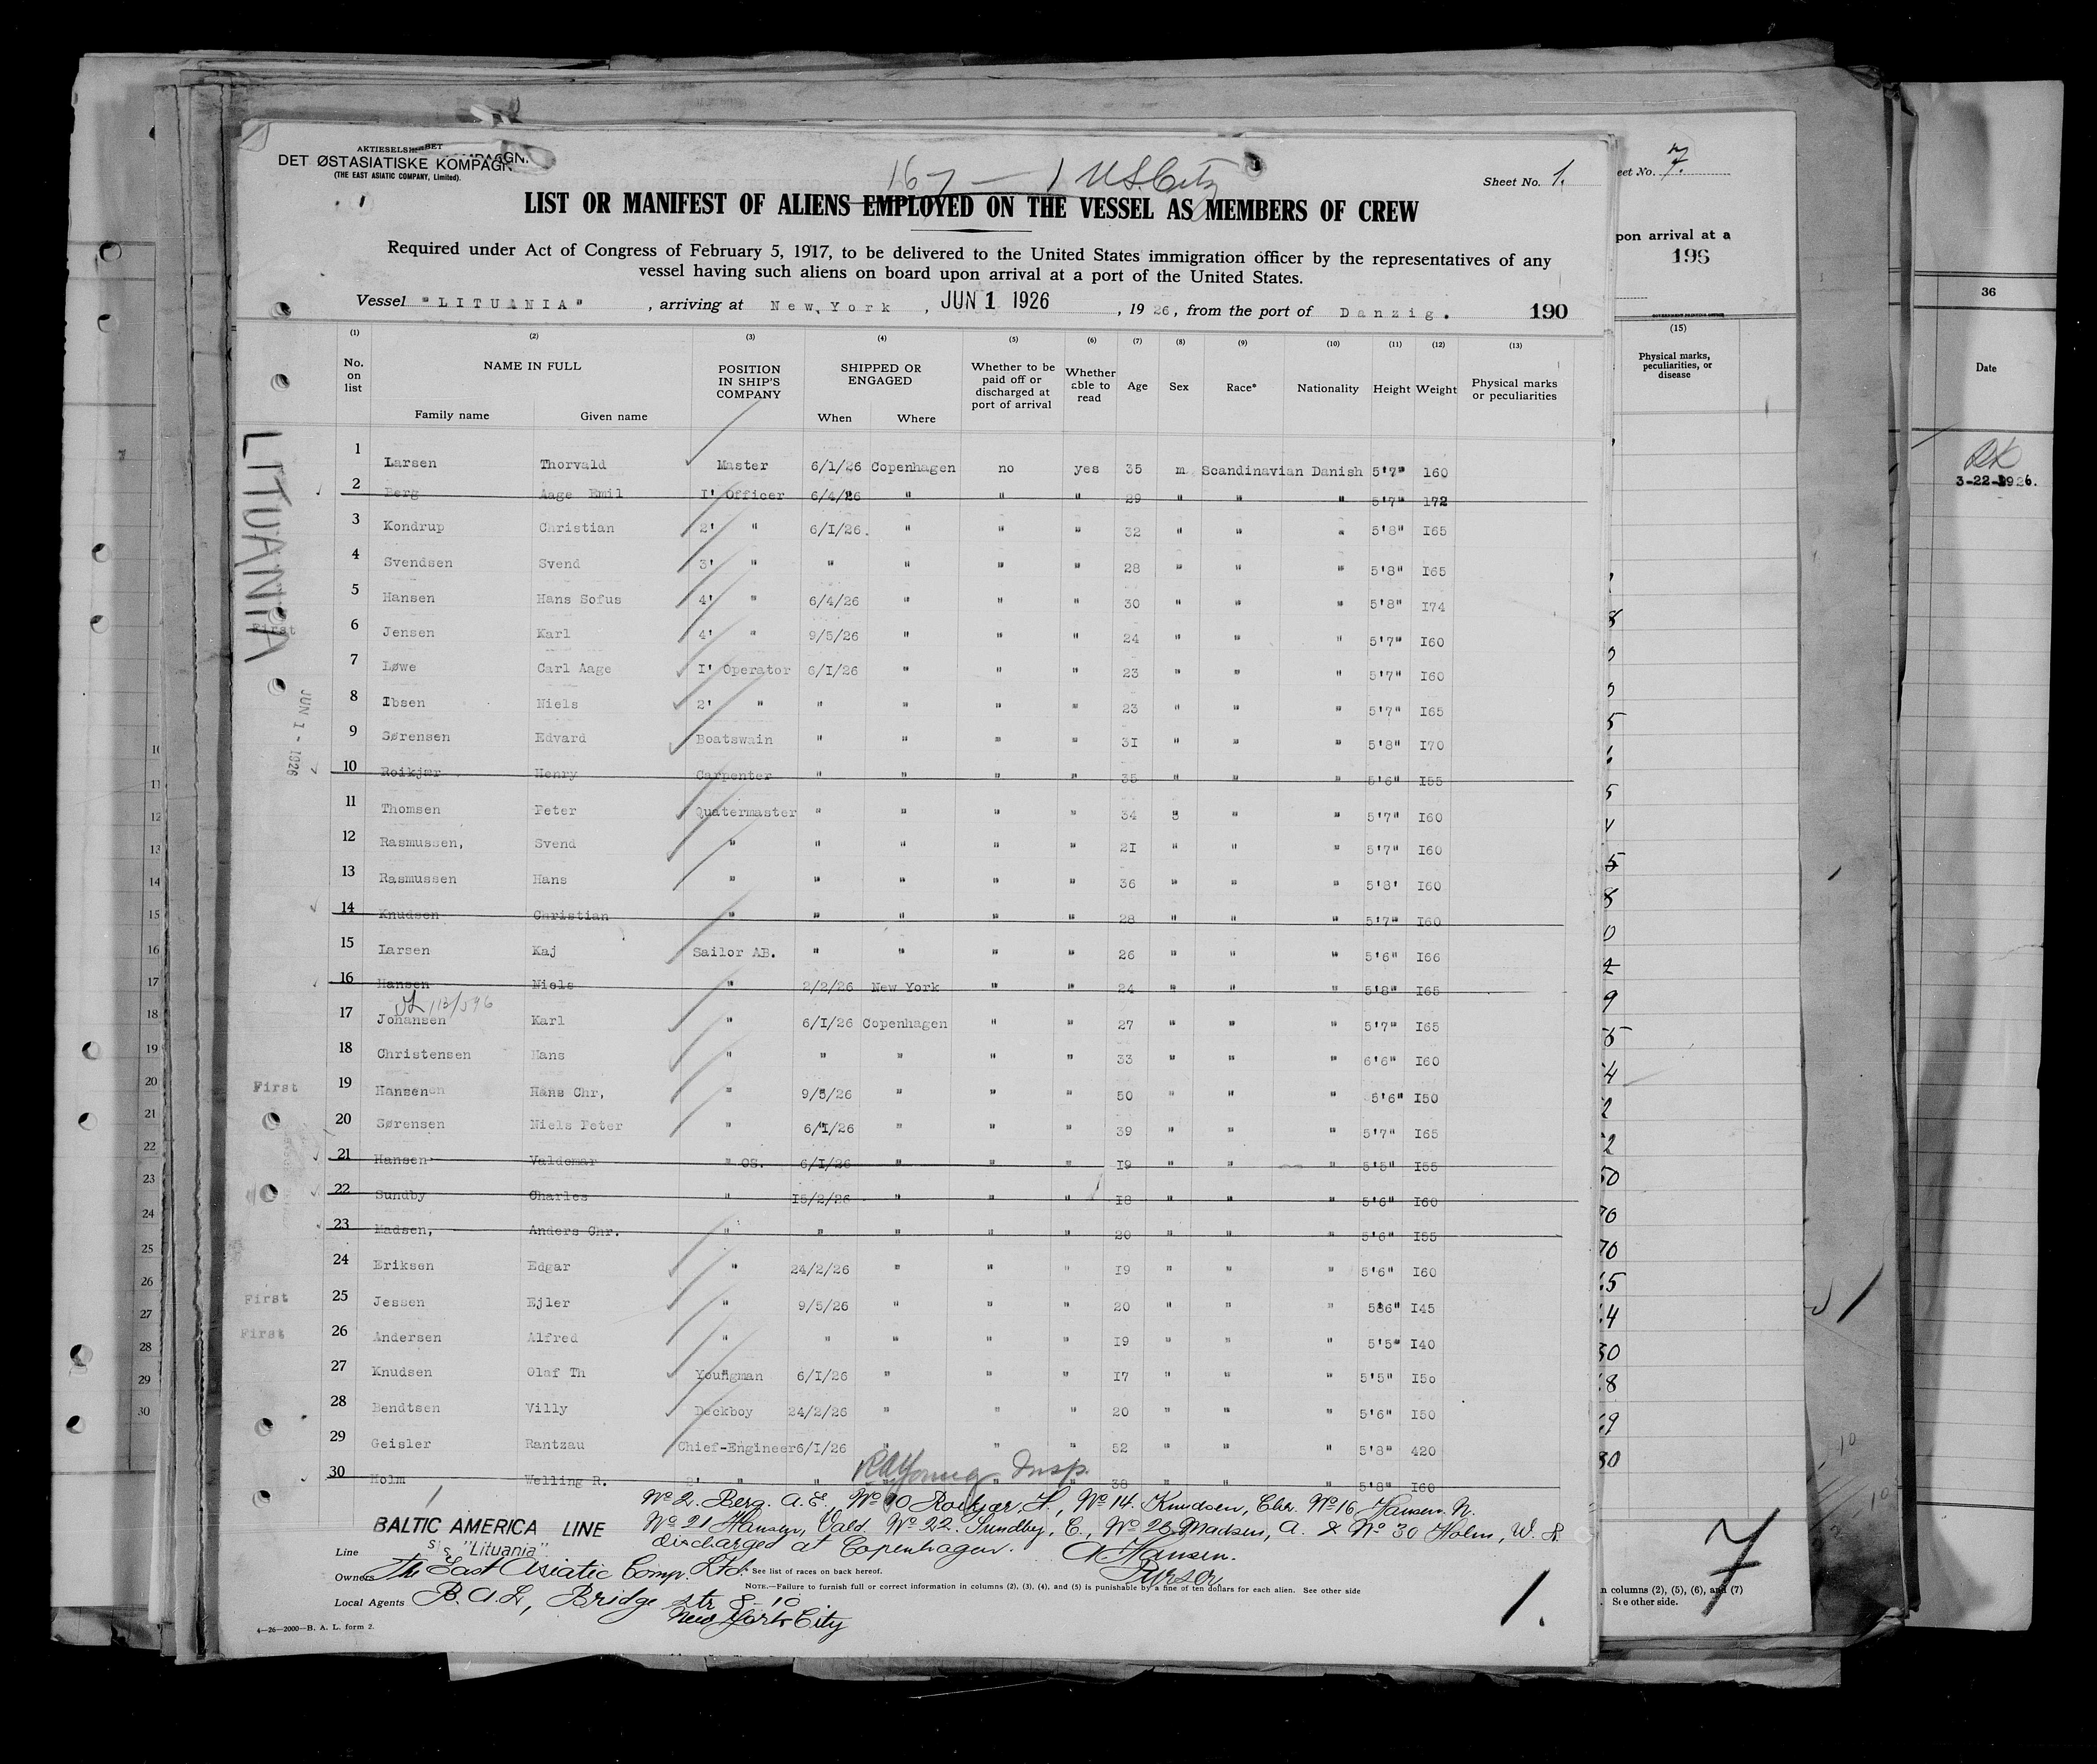 AKTIESELSKABET
DET ØSTASIATISKE KOMPAGNI
(THE EAST ASIATIC COMPANY, Limited).
167 — 1 US. City
Sheet No. 1.
LIST OR MANIFEST OF ALIENS EMPLOYED ON THE VESSEL AS MEMBERS OF CREW
Required under Act of Congress of February 5, 1917, to be delivered to the United States immigration officer by the representatives of any
vessel having such aliens on board upon arrival at a port of the United States.
Vessel "LITUANIA", arriving at New York, JUN 1 1926, 1926, from the port of Danzig. 190
(1) (2) (3) (4) (5) (6) (7) (8) (9) (10) (11) (12) (13)
No. on list NAME IN FULL Family name Given name POSITION IN SHIP'S COMPANY SHIPPED OR ENGAGED When Where Whether to be paid off or discharged at port of arrival Whether able to read Age Sex Race* Nationality Height Weight Physical marks or peculiarities
LITUANIA
1 Larsen Thorvald Master 6/1/26 Copenhagen no yes 35 m Scandinavian Danish 5'7" 160
2 Berg Aage Emil I' Officer 6/4/26 " " " 29 " " " 5'7" 172
3 Kondrup Christian 2' " 6/I/26. " " " 32 " " " 5'8" I65
4 Svendsen Svend 3' " " " " " 28 " " " 5'8" I65
5 Hansen Hans Sofus 4' " 6/4/26 " " " 30 " " " 5'8" I74
First 6 Jensen Karl 4' " 9/5/26 " " " 24 " " " 5'7" I60
7 Løwe Carl Aage I' Operator 6/I/26 " " " 23 " " " 5'7" I60
8 Ibsen Niels 2' " " " " " 23 " " " 5'7" I65
JUN 1 - 1926
9 Sørensen Edvard Boatswain " " " " 3I " " " 5'8" I70
10 Roikjær Henry Carpenter " " " " 35 " " " 5'6" I55
11 Thomsen Peter Quatermaster " " " " 34 " " " 5'7" I60
12 Rasmussen, Svend " " " " " 2I " " " 5'7" I60
13 Rasmussen Hans " " " " " 36 " " " 5'8' I60
14 Knudsen Christian " " " " " 28 " " " 5'7" I60
15 Larsen Kaj Sailor AB. " " " " 26 " " " 5'6" I66
16 Hansen Niels " 2/2/26 New York " " 24 " " " 5'8" I65
113/596
17 Johansen Karl " 6/I/26 Copenhagen " " 27 " " " 5'7" I65
18 Christensen Hans " " " " " 33 " " " 6'6" I60
First 19 Hansen Hans Chr, " 9/5/26 " " " 50 " " " 5'6" I50
20 Sørensen Niels Peter " 6/I/26 " " " 39 " " " 5'7" I65
21 Hansen Valdemar " OS. 6/I/26 " " " I9 " " " 5'5" I55
22 Sundby Charles " I5/2/26 " " " I8 " " " 5'6" I60
23 Madsen, Anders Chr. " " " " " 20 " " " 5'6" I55
24 Eriksen Edgar " 24/2/26 " " " I9 " " " 5'6" I60
First 25 Jessen Ejler " 9/5/26 " " " 20 " " " 5'6" I45
First 26 Andersen Alfred " " " " " I9 " " " 5'5" I40
27 Knudsen Olaf Th Youngman 6/I/26 " " " I7 " " " 5'5" I5o
28 Bendtsen Villy Deckboy 24/2/26 " " " 20 " " " 5'6" I50
29 Geisler Rantzau Chief-Engineer 6/I/26 " " " 52 " " " 5'8" 420
30 Holm Welling R. 2' " " " " " 38 " " " 5'8" I60
RAYoung Insp.
No 2. Berg. A.E., No 10 Roikjær, H., No 14. Knudsen, Chr. No 16 Hansen. N.
No 21 Hansen, Vald. No 22. Sundby, C., No 23 Madsen, A. & No 30 Holm, W. R.
discharged at Copenhagen. A. Hansen.
Purser
BALTIC AMERICA LINE
Line s/s "Lituania"
Owners The East Asiatic Comp. Ltd. * See list of races on back hereof.
NOTE.—Failure to furnish full or correct information in columns (2), (3), (4), and (5) is punishable by a fine of ten dollars for each alien. See other side
Local Agents B.A.L, Bridge str 8-10
New York City
4—26—2000—B. A. L. form 2.
1.
eet No. 7.
pon arrival at a
196
GOVERNMENT PRINTING OFFICE
(15)
Physical marks, peculiarities, or disease
n columns (2), (5), (6), and (7)
See other side.
7
36
Date
RK
3-22-1926.
10
11
12
13
14
15
16
17
18
19
20
21
22
23
24
25
26
27
28
29
30